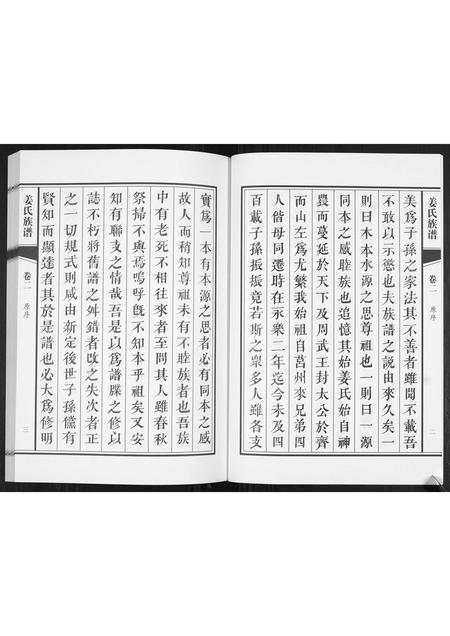 姜氏族谱
卷二 原序
二
美爲子孫之家法其不善者雖聞不載吾
不敢以示懲也夫族譜之説由來久矣一
則曰木本水源之思尊祖也一則曰一源
同本之感睦族也追憶其始姜氏始自神
農而蔓延於天下及周武王封太公於齊
而山左爲尤繁我始祖自莒州來兄弟四
人偕母同遷時在永樂二年迄今未及四
百載子孫振振竟若斯之衆多人雖各支
實爲一本有本源之思者必有同本之感
故人而稍知尊祖未有不睦族者也吾族
中有老死不相往來者至問其人雖春秋
祭掃不與焉嗚呼旣不知本乎祖矣又安
知有聯支之情哉吾是以爲譜牒之修以
誌不朽將舊譜之舛錯者改之失次者正
之一切規式則咸由新定後世子孫儻有
賢知而顯達者其於是譜也必大爲修明
姜氏族谱
卷二 原序
三